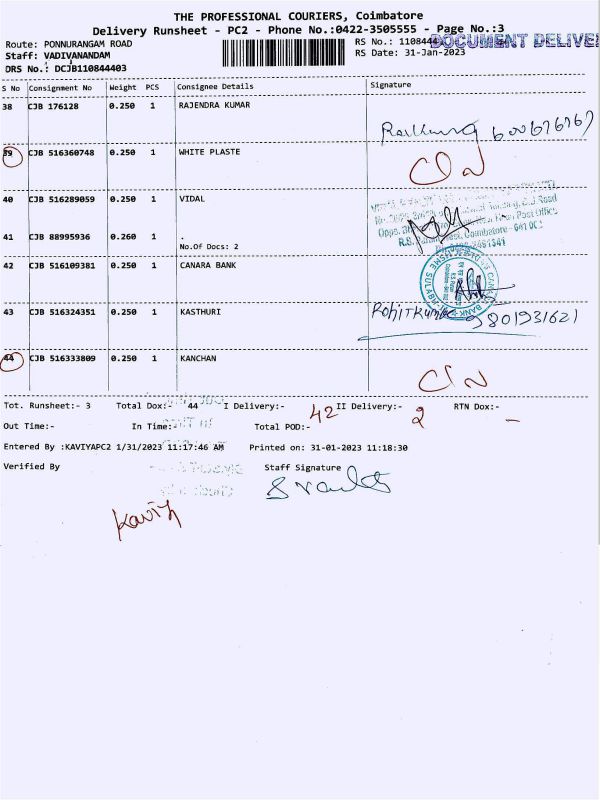 THE PROFESSIONAL COURIERS, Coimbatore
Delivery Runsheet - PC2 - Phone No.:0422-3505555 - Page No.:3
Route: PONNURANGAM ROAD
RS No.: 1108444
DOCUMENT DELIVE
Staff: VADIVANANDAM
RS Date: 31-Jan-2023
DRS No.: DCJB110844403
S No Consignment No Weight PCS Consignee Details Signature
38 CJB 176128 0.250 1 RAJENDRA KUMAR
39 CJB 516360748 0.250 1 WHITE PLASTE
40 CJB 516289059 0.250 1 VIDAL
41 CJB 88995936 0.260 1
No.Of Docs: 2
42 CJB 516109381 0.250 1 CANARA BANK
43 CJB 516324351 0.250 1 KASTHURI
Rohit Kumar 9801931621
44 CJB 516333809 0.250 1 KANCHAN
Tot. Runsheet:- 3 Total Dox:- 44 I Delivery:- 42 II Delivery:- 2 RTN Dox:- -
Out Time:- In Time:- Total POD:-
Entered By :KAVIYAPC2 1/31/2023 11:17:46 AM Printed on: 31-01-2023 11:18:30
Verified By Staff Signature